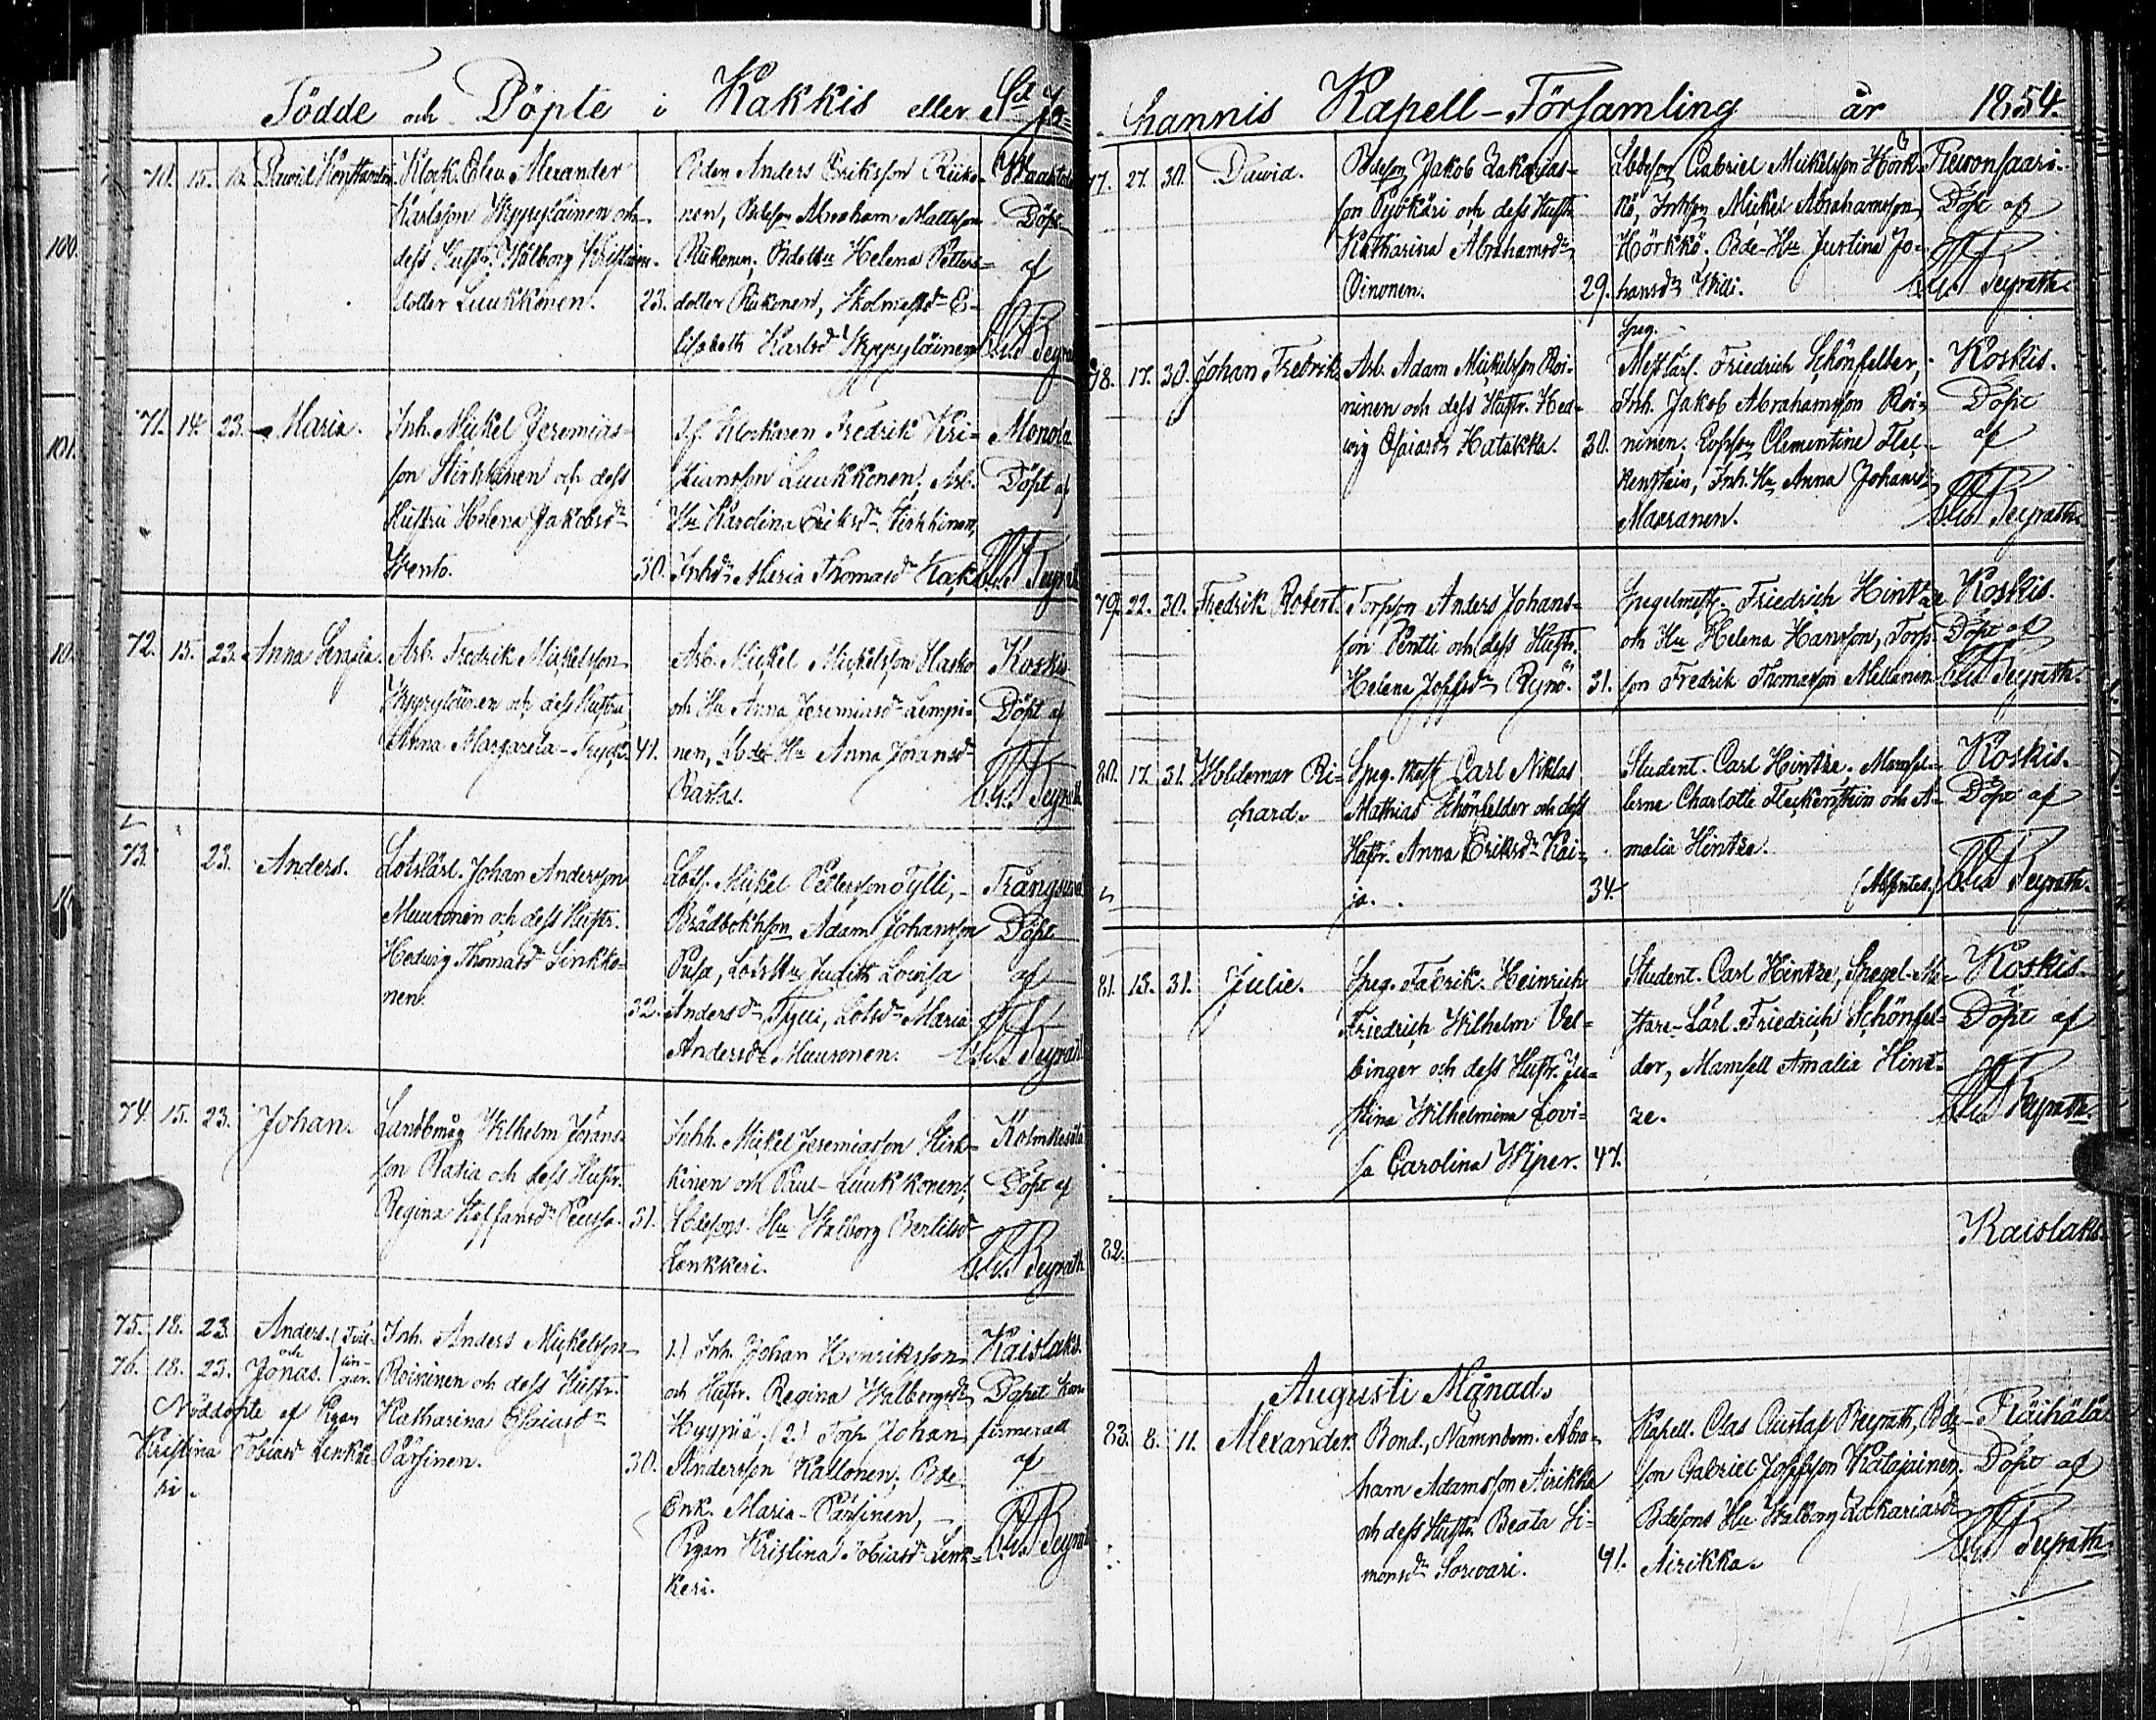 Födde och Döpte i Kakkis eller S:t Jo=
70. 15. 16. Dawid Konstantin
Klock. Elev Alexander
Karlsson Kyyryläinen och
dess Hustr. Walborg Kristians=
dotter Luukkonen. 23.
Bden Anders Eriksson Riiko=
nen, Bdesson Abraham Mattsson
Riikonen, Bde Hu Helena Petters=
dotter Riikonen, Skolmästd:r E=
lisabeth Karlsd:r Kyyryläinen
Döpt
af
71. 14. 23. Maria.
Inh. Mickel Jeremias=
son Stirkkinen och dess
Hustru Helena Jakobsd:r
30.
Klockaren Fredrik Kri=
stiansson Luukkonen, Arb.
Hu Karolina Eriksd:r Stirkkinen,
Inhd:r Maria Thomasd:r
Monola
Döpt af
72. 15. 23. Anna Serafia.
Arb. Fredrik Mickelsson
Kyyryläinen och dess Hustru
Anna Margareta 41.
Arb. Mickel Mickelsson Hasko
och Hu Anna Jeremiasd:r Lempi=
nen, Hu Anna Jöransd:r
Rastas.
Koskis
Döpt af
73. 23. Anders.
Lotslärl. Johan Andersson
Muuronen och dess Hustr.
Hedwig Thomasd:r Sinkko=
nen. 32.
Lots. Mickel Pettersson Tylli,
Adam Johansson
Pusa, Lots Hu Judith Lovisa
Andersd:r Tylli, Lotsd:r Maria
Andersd:r Muuronen.
Trångsund
Döpt
af
74. 15. 23. Johan.
Landbmåg Wilhelm Jörans=
son Ratia och dess Hustr.
Regina Staffansd:r Peusa. 31.
Inhh. Mickel Jeremiasson Stirk=
kinen och Paul Luukkonen,
Hu Walborg Bertilsd:r
Lenkkeri.
Kolmikesälä
Döpt af
75. 18. 23. Anders. (Tvil=
och
76. 18. 23. Jonas. lin=
gar.
Nöddöpte af Pigan
Kristina Tobiasd. Lenkke=
ri.
Inh. Anders Mickelsson
Roininen och dess Hustr.
Katharina Esaiasd:r
Pärsinen. 30.
1.) Inh. Johan Henriksson
och Hustr. Regina Walbergsd:r
Hyypiä. (2.) Torp. Johan
Andersson Kallonen, Bde
Enk. Maria Pärsinen,
Pigan Kristina Tobiasd:r Lenk=
keri.
Kaislaks.
Döpet kon=
firmerad
af
hannis Kapell-Församling år 1854.
77. 27. 30. Dawid.
Bdesson Jakob Zakarias=
son Pyökäri och dess Hustr.
Katharina Abrahamsd:r
Oinonen. 29.
Gabriel Mickelsson Hörk=
kö, Mickel Abrahamsson
Hörkkö, Bde-Hu Justina Jo=
hansd:r Willi.
Rewonsaari.
Döpt af
78. 17. 30. Johan Fredrik.
Arb. Adam Mickelsson Roi=
ninen och dess Hustr. Hed=
wig Esaiasd:r Hatakka. 30.
Speg.
Mest.lärl. Friedrich Schönfelder,
Inh. Jakob Abrahamsson Roi=
ninen, Clementine Flec=
kenstein, Inh. Hu Anna Johansd:r
Masranen.
Koskis.
Döpt
af
79. 22. 30. Fredrik Robert.
Torpson Anders Johans=
son Pentti och dess Hustr.
Helena Josefsd:r Repo. 31.
Spegelmest. Friedrich Hintze
och Hu Helena Hansson, Torp=
son Fredrik Thomasson Mellanen
Koskis.
Döpt af
80. 17. 31. Woldemar Ri=
chard.
Speg. Mest. Carl Niklas
Mathias Schönfelder och dess
Hustr. Anna Eriksd:r Kai=
ja. 34.
Student. Carl Hintze, Mamsel=
lerne Charlotte Fleckenstein och A=
malia Hintze.
Koskis.
Döpt af
81. 13. 31. Julie.
Speg. Fabrik. Heinrich
Friedrich Wilhelm Vel=
binger och dess Hustr. Ju=
stina Wilhelmina Lovi=
sa Carolina Wiper. 47.
Student. Carl Hintze, Spegel-Me=
stare-Lärl. Friedrich Schönfel=
der, Mamsell Amalia Hint=
ze.
Koskis
Döpt af
82. Kaislaks.
Augusti Månad.
83. 8. 11. Alexander.
Bond., Nämndem. Abra=
ham Adamsson Airikka
och dess Hustr. Beata Si=
monsd:r Sorwari. 41.
Kapell. Clas Gustaf Beyrath, Bde=
son Gabriel Josefsson Katajainen,
Bdesons Hu Walborg Zakariasd:r
Airikka.
Häihälä
Döpt af